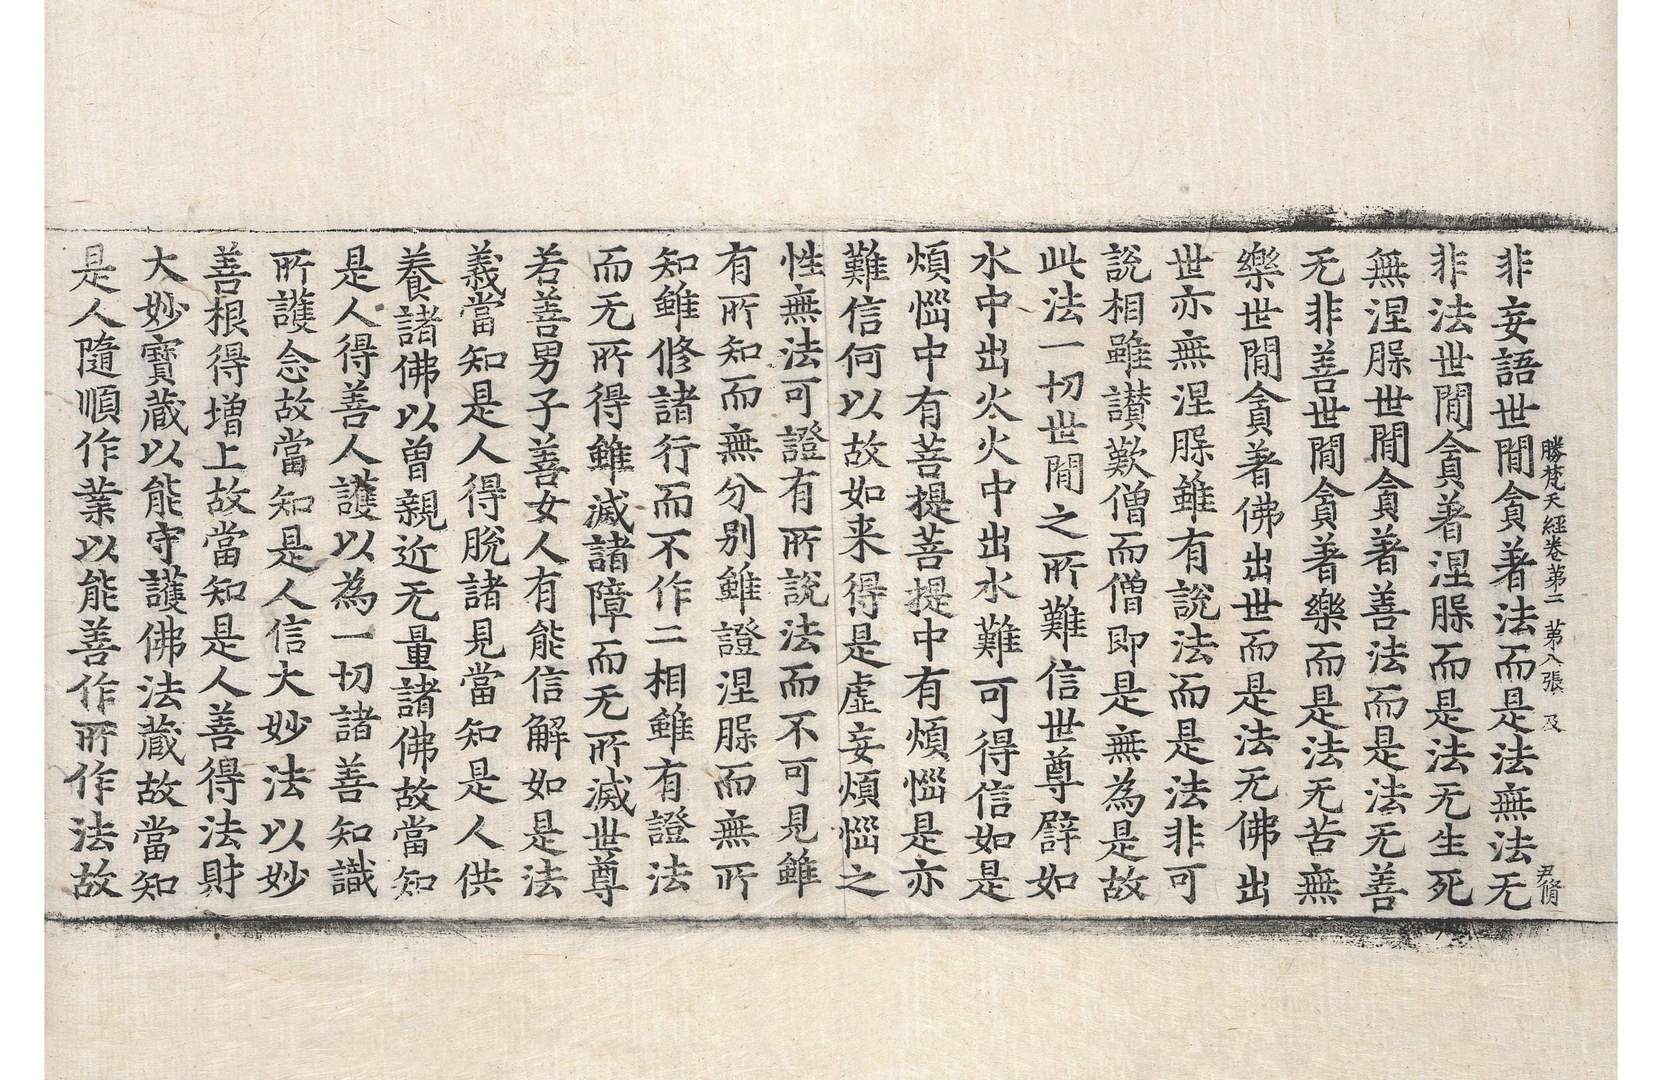 勝梵天經卷第二 第八張 及
尹脩
非妄語世閒貪著法而是法無法无
非法世閒貪著涅槃而是法无生死
無涅槃世閒貪著善法而是法无善
无非善世閒貪著樂而是法无苦無
樂世閒貪著佛出世而是法无佛出
世亦無涅槃雖有說法而是法非可
說相雖讃歎僧而僧即是無為是故
此法一切世閒之所難信世尊辟如
水中出火火中出水難可得信如是
煩惱中有菩提菩提中有煩惱是亦
難信何以故如来得是虛妄煩惱之
性無法可證有所說法而不可見雖
有所知而無分别雖證涅槃而無所
知雖修諸行而不作二相雖有證法
而无所得雖滅諸障而无所滅世尊
若善男子善女人有能信解如是法
義當知是人得脫諸見當知是人供
養諸佛以曽親近无量諸佛故當知
是人得善人護以為一切諸善知識
所護念故當知是人信大妙法以妙
善根得増上故當知是人善得法財
大妙寳藏以能守護佛法藏故當知
是人隨順作業以能善作所作法故